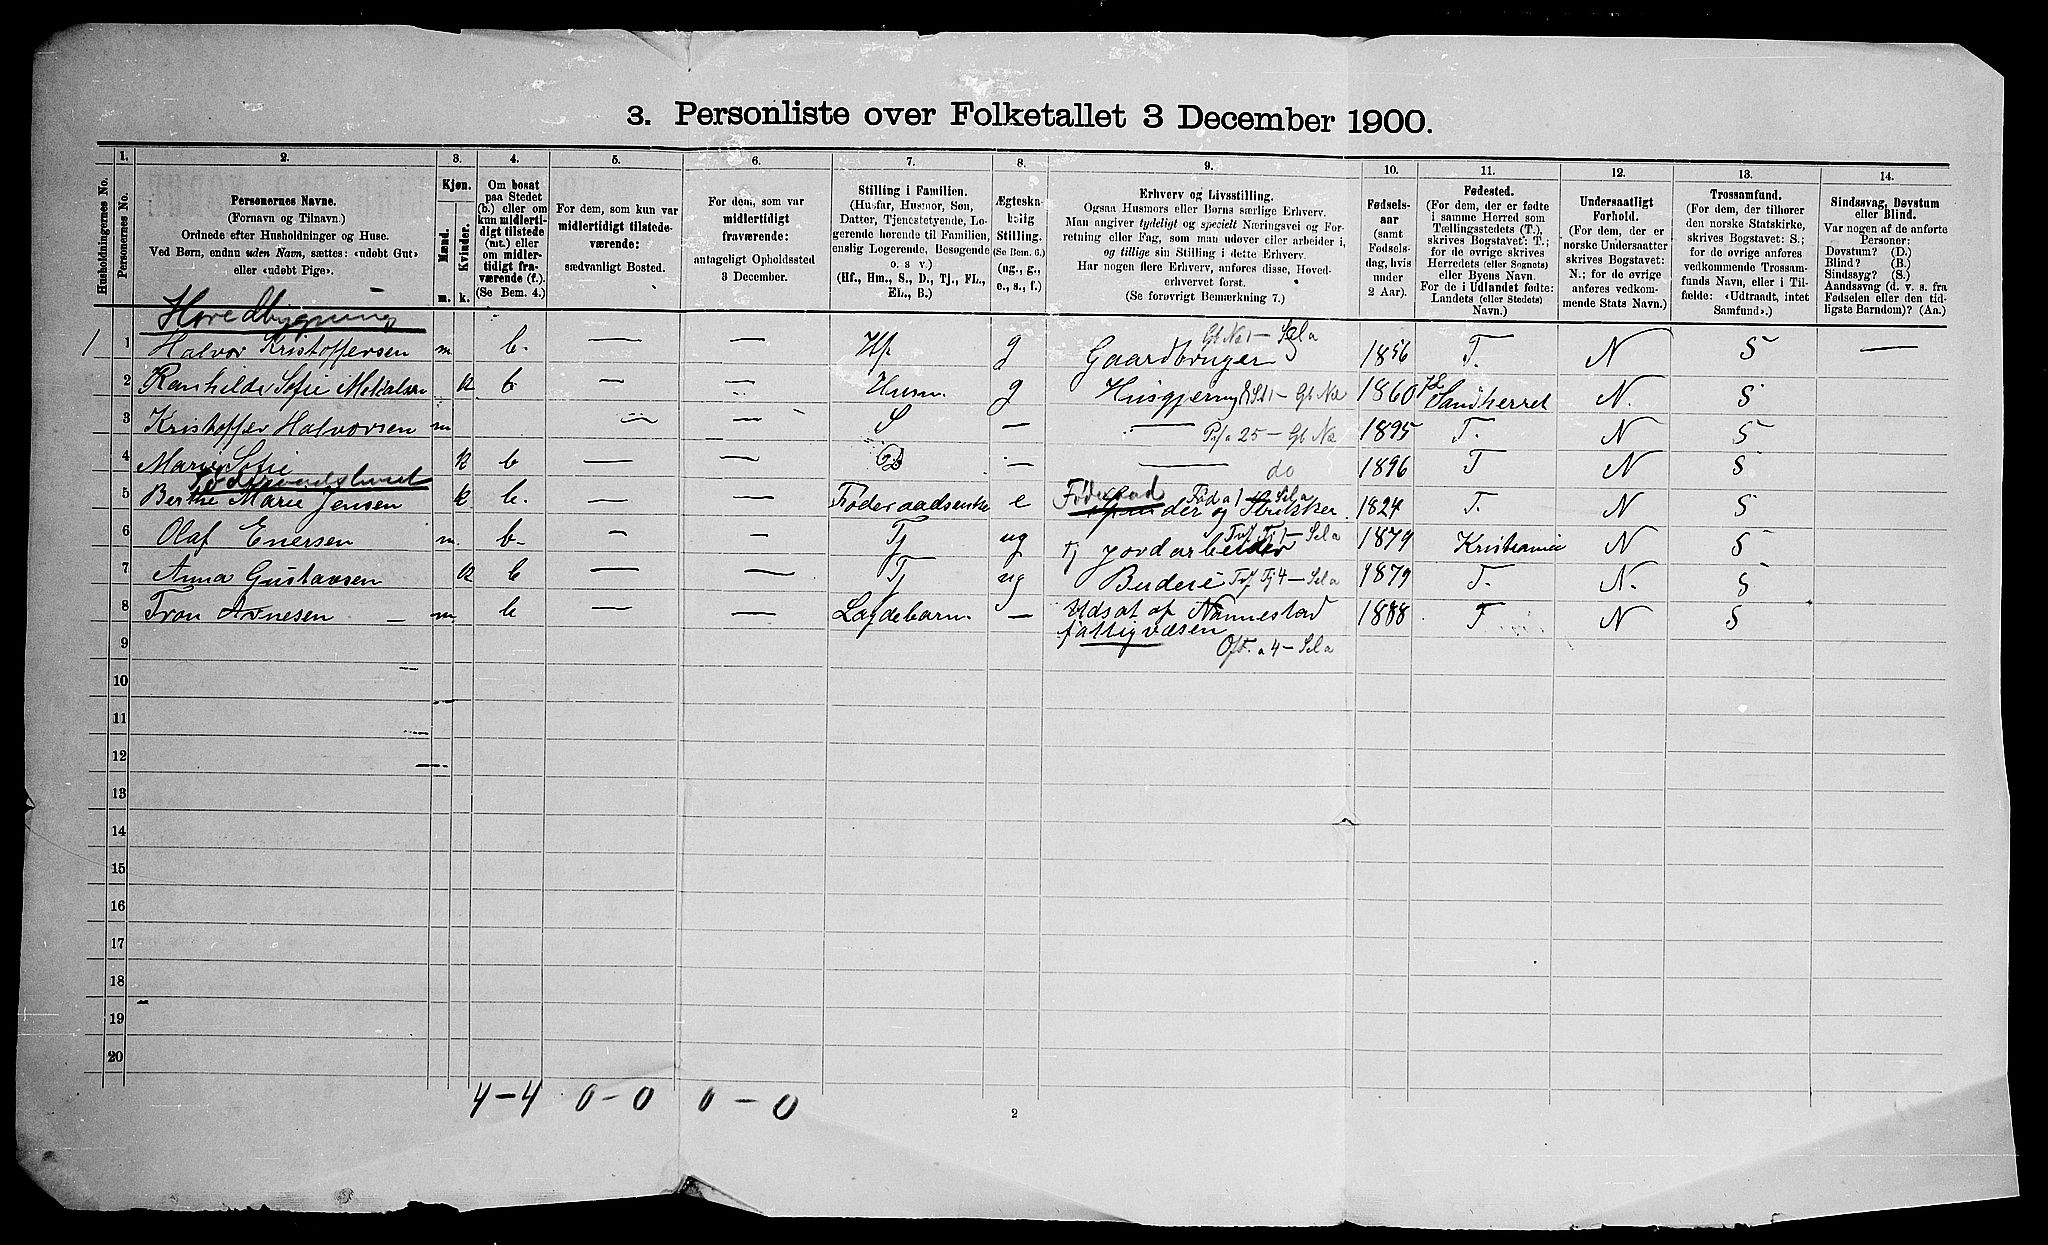 3. Personliste over Folketallet 3 December 1900.
1. 2. 3. 4. 5. 6. 7. 8. 9. 10. 11. 12. 13. 14.
Husholdningernes No.
Personernes No.
Personernes Navne.
(Fornavn og Tilnavn.)
Ordnede efter Husholdninger og Huse.
Ved Børn, endnu uden Navn, sættes: «udøbt Gut»
eller «udøbt Pige».
Kjøn.
Mænd.
Kvinder.
m. k.
Om bosat
paa Stedet
(b.) eller om
kun midlerti-
digt tilstede
(mt.) eller
om midler-
tidigt fra-
værende (f.).
(Se Bem. 4.)
For dem, som kun var
midlertidigt tilstede-
værende:
sædvanligt Bosted.
For dem, som var
midlertidigt
fraværende:
antageligt Opholdssted
3 December.
Stilling i Familien.
(Husfar, Husmor, Søn,
Datter, Tjenestetyende, Lo-
gerende hørende til Familien,
enslig Logerende, Besøgende
o. s. v.)
(Hf., Hm., S., D., Tj., FL.,
EL., B.)
Ægteska-
belig
Stilling.
(Se Bem. 6.)
(ug., g.,
e., s., f.)
Erhverv og Livsstilling.
Ogsaa Husmors eller Børns særlige Erhverv.
Man angiver tydeligt og specielt Næringsvei og For-
retning eller Fag, som man udøver eller arbeider i,
og tillige sin Stilling i dette Erhverv.
Har nogen flere Erhverv, anføres disse, Hoved-
erhvervet først.
(Se forøvrigt Bemærkning 7.)
Fødsels-
aar
(samt
Fødsels-
dag, hvis
under
2 Aar).
Fødested.
(For dem, der er fødte
i samme Herred som
Tællingsstedets (T.),
skrives Bogstavet: T.;
for de øvrige skrives
Herredets (eller Sognets)
eller Byens Navn.
For de i Udlandet fødte:
Landets (eller Stedets)
Navn.)
Undersaatligt
Forhold.
(For dem, der er
norske Undersaatter
skrives Bogstavet:
N.; for de øvrige
anføres vedkom-
mende Stats Navn.)
Trossamfund.
(For dem, der tilhører
den norske Statskirke,
skrives Bogstavet: S.;
for de øvrige anføres
vedkommende Trossam-
funds Navn, eller i Til-
fælde: «Udtraadt, intet
Samfund».)
Sindssvag, Døvstum
eller Blind.
Var nogen af de anførte
Personer:
Døvstum? (D.)
Blind? (B.)
Sindssyg? (S.)
Aandssvag (d. v. s. fra
Fødselen eller den tid-
ligste Barndom)? (Aa.)
Hovedbygning
1 1 Halvor Kristoffersen m. b. — — Hf g Gaardbruger Gb No 1 — Sela 1856 T. N S —
2 Ranhilde Sofie Mikalsen k b — — Husm. g Husgjerning 1860 Sandherret N. S
3 Kristoffer Halvorsen m — — S — — 1895 T. N S
4 Marie Sofie k b — — D — — do 1896 T N S
5 Berthe Marie Jensen k b. — — Føderaadsenke e Føderaad og Strikker Sela 1824 T. N S
6 Olaf Enersen m. b. — — Tj ug Tj Jordarbeider Sela 1879 Kristiania N S
7 Anna Gustavsen k b — — Tj ug Budeie Tj 4 — Sela 1879 T. N. S
8 Tron Arnesen — m. b — — Lægdebarn. — Udsat af Nannestad 1888 T N S
fattigvæsen
9 a 4 — Sela
10
11
12
13
14
15
16
17
18
19
20
4-4 0-0 0-0
2